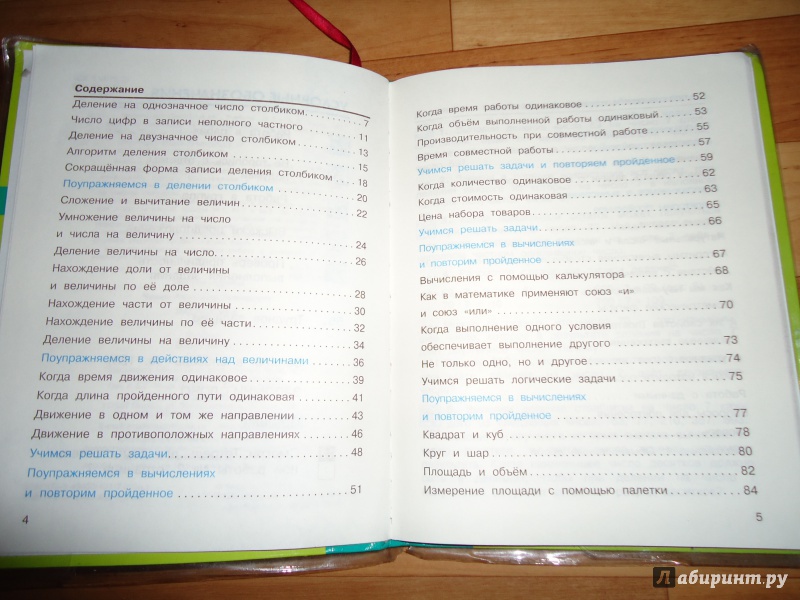 Содержание
Деление на однозначное число столбиком. 7
Число цифр в записи неполного частного 11
Деление на двузначное число столбиком 13
Алгоритм деления столбиком 15
Сокращённая форма записи деления столбиком 18
Поупражняемся в делении столбиком 20
Сложение и вычитание величин 22
Умножение величины на число
и числа на величину 24
Деление величины на число. 26
Нахождение доли от величины
и величины по её доле 28
Нахождение части от величины 30
Нахождение величины по её части 32
Деление величины на величину 34
Поупражняемся в действиях над величинами 36
Когда время движения одинаковое 39
Когда длина пройденного пути одинаковая 41
Движение в одном и том же направлении 43
Движение в противоположных направлениях 46
Учимся решать задачи. 48
Поупражняемся в вычислениях
и повторим пройденное 51
4
Когда время работы одинаковое 52
Когда объём выполненной работы одинаковый. 53
Производительность при совместной работе 55
Время совместной работы 57
Учимся решать задачи и повторяем пройденное 59
Когда количество одинаковое 62
Когда стоимость одинаковая 63
Цена набора товаров 65
Учимся решать задачи. 66
Поупражняемся в вычислениях
и повторим пройденное 67
Вычисления с помощью калькулятора 68
Как в математике применяют союз «и»
и союз «или» 70
Когда выполнение одного условия
обеспечивает выполнение другого 73
Не только одно, но и другое 74
Учимся решать логические задачи 75
Поупражняемся в вычислениях
и повторим пройденное 77
Квадрат и куб 78
Круг и шар 80
Площадь и объём 82
Измерение площади с помощью палетки 84
5
Лабиринт.ру